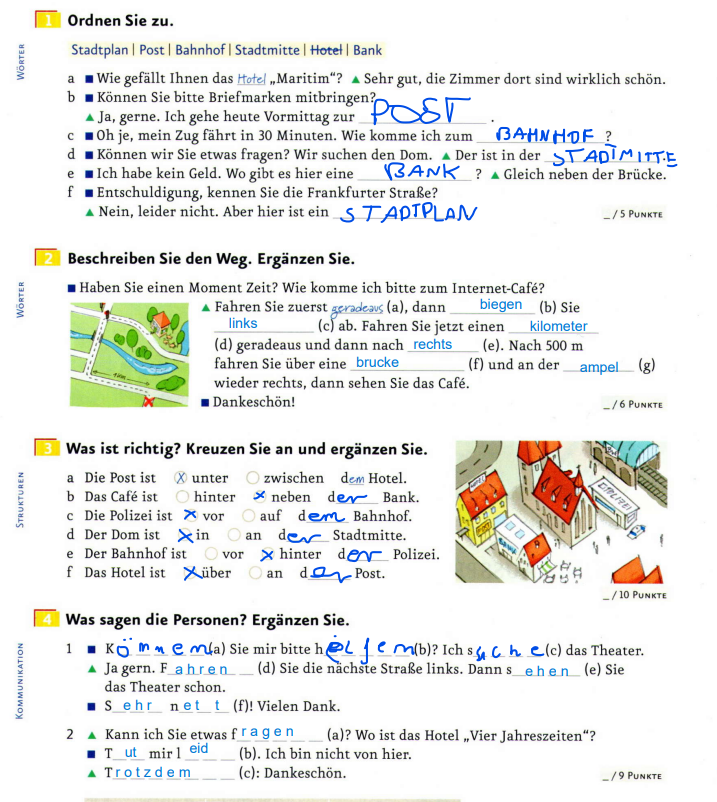 1 Ordnen Sie zu.
WÖRTER
Stadtplan | Post | Bahnhof | Stadtmitte | Hotel | Bank
a ■ Wie gefällt Ihnen das Hotel „Maritim“? ▲ Sehr gut, die Zimmer dort sind wirklich schön.
b ■ Können Sie bitte Briefmarken mitbringen?
▲ Ja, gerne. Ich gehe heute Vormittag zur POST .
c ■ Oh je, mein Zug fährt in 30 Minuten. Wie komme ich zum BAHNHOF ?
d ■ Können wir Sie etwas fragen? Wir suchen den Dom. ▲ Der ist in der STADTMITTE
e ■ Ich habe kein Geld. Wo gibt es hier eine BANK ? ▲ Gleich neben der Brücke.
f ■ Entschuldigung, kennen Sie die Frankfurter Straße?
▲ Nein, leider nicht. Aber hier ist ein STADTPLAN
_ / 5 PUNKTE
2 Beschreiben Sie den Weg. Ergänzen Sie.
WÖRTER
■ Haben Sie einen Moment Zeit? Wie komme ich bitte zum Internet-Café?
▲ Fahren Sie zuerst geradeaus (a), dann biegen (b) Sie
links (c) ab. Fahren Sie jetzt einen kilometer
(d) geradeaus und dann nach rechts (e). Nach 500 m
fahren Sie über eine brucke (f) und an der ampel (g)
wieder rechts, dann sehen Sie das Café.
■ Dankeschön!
1 km
_ / 6 PUNKTE
3 Was ist richtig? Kreuzen Sie an und ergänzen Sie.
STRUKTUREN
a Die Post ist X unter ○ zwischen dem Hotel.
b Das Café ist ○ hinter X neben der Bank.
c Die Polizei ist X vor ○ auf dem Bahnhof.
d Der Dom ist X in ○ an der Stadtmitte.
e Der Bahnhof ist ○ vor X hinter der Polizei.
f Das Hotel ist X über ○ an der Post.
HOTEL
BANK
POLIZEI
_ / 10 PUNKTE
4 Was sagen die Personen? Ergänzen Sie.
KOMMUNIKATION
1 ■ Können (a) Sie mir bitte helfen (b)? Ich suche (c) das Theater.
▲ Ja gern. Fahren (d) Sie die nächste Straße links. Dann sehen (e) Sie
das Theater schon.
■ Sehr nett (f)! Vielen Dank.
2 ▲ Kann ich Sie etwas fragen (a)? Wo ist das Hotel „Vier Jahreszeiten“?
■ Tut mir leid (b). Ich bin nicht von hier.
▲ Trotzdem (c): Dankeschön.
_ / 9 PUNKTE